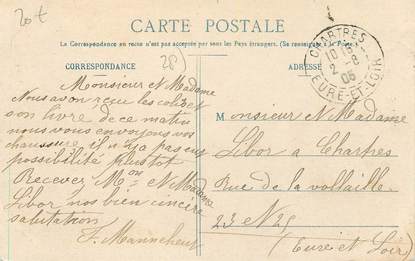 20 €
CARTE POSTALE
La Correspondance au recto n'est pas acceptée par tous les Pays étrangers. (Se renseigner à la Poste.)
CORRESPONDANCE
(28)
ADRESSE
CHARTRES
10 15
2 -8
06
EURE-ET-LOIR
Monsieur et Madame
Nous avon reçu les colis et
son livre de ce matin
nous vous envoyons vos
chaussure il n'y a pas eu
possibilité plustot
Recever Mon et Madame
Libor nos bien cincère
salutation
F. Manncheut
Monsieur et Madame
Libor a Chartres
Rue de la vollaille
23 et 25
(Eure et Loir)